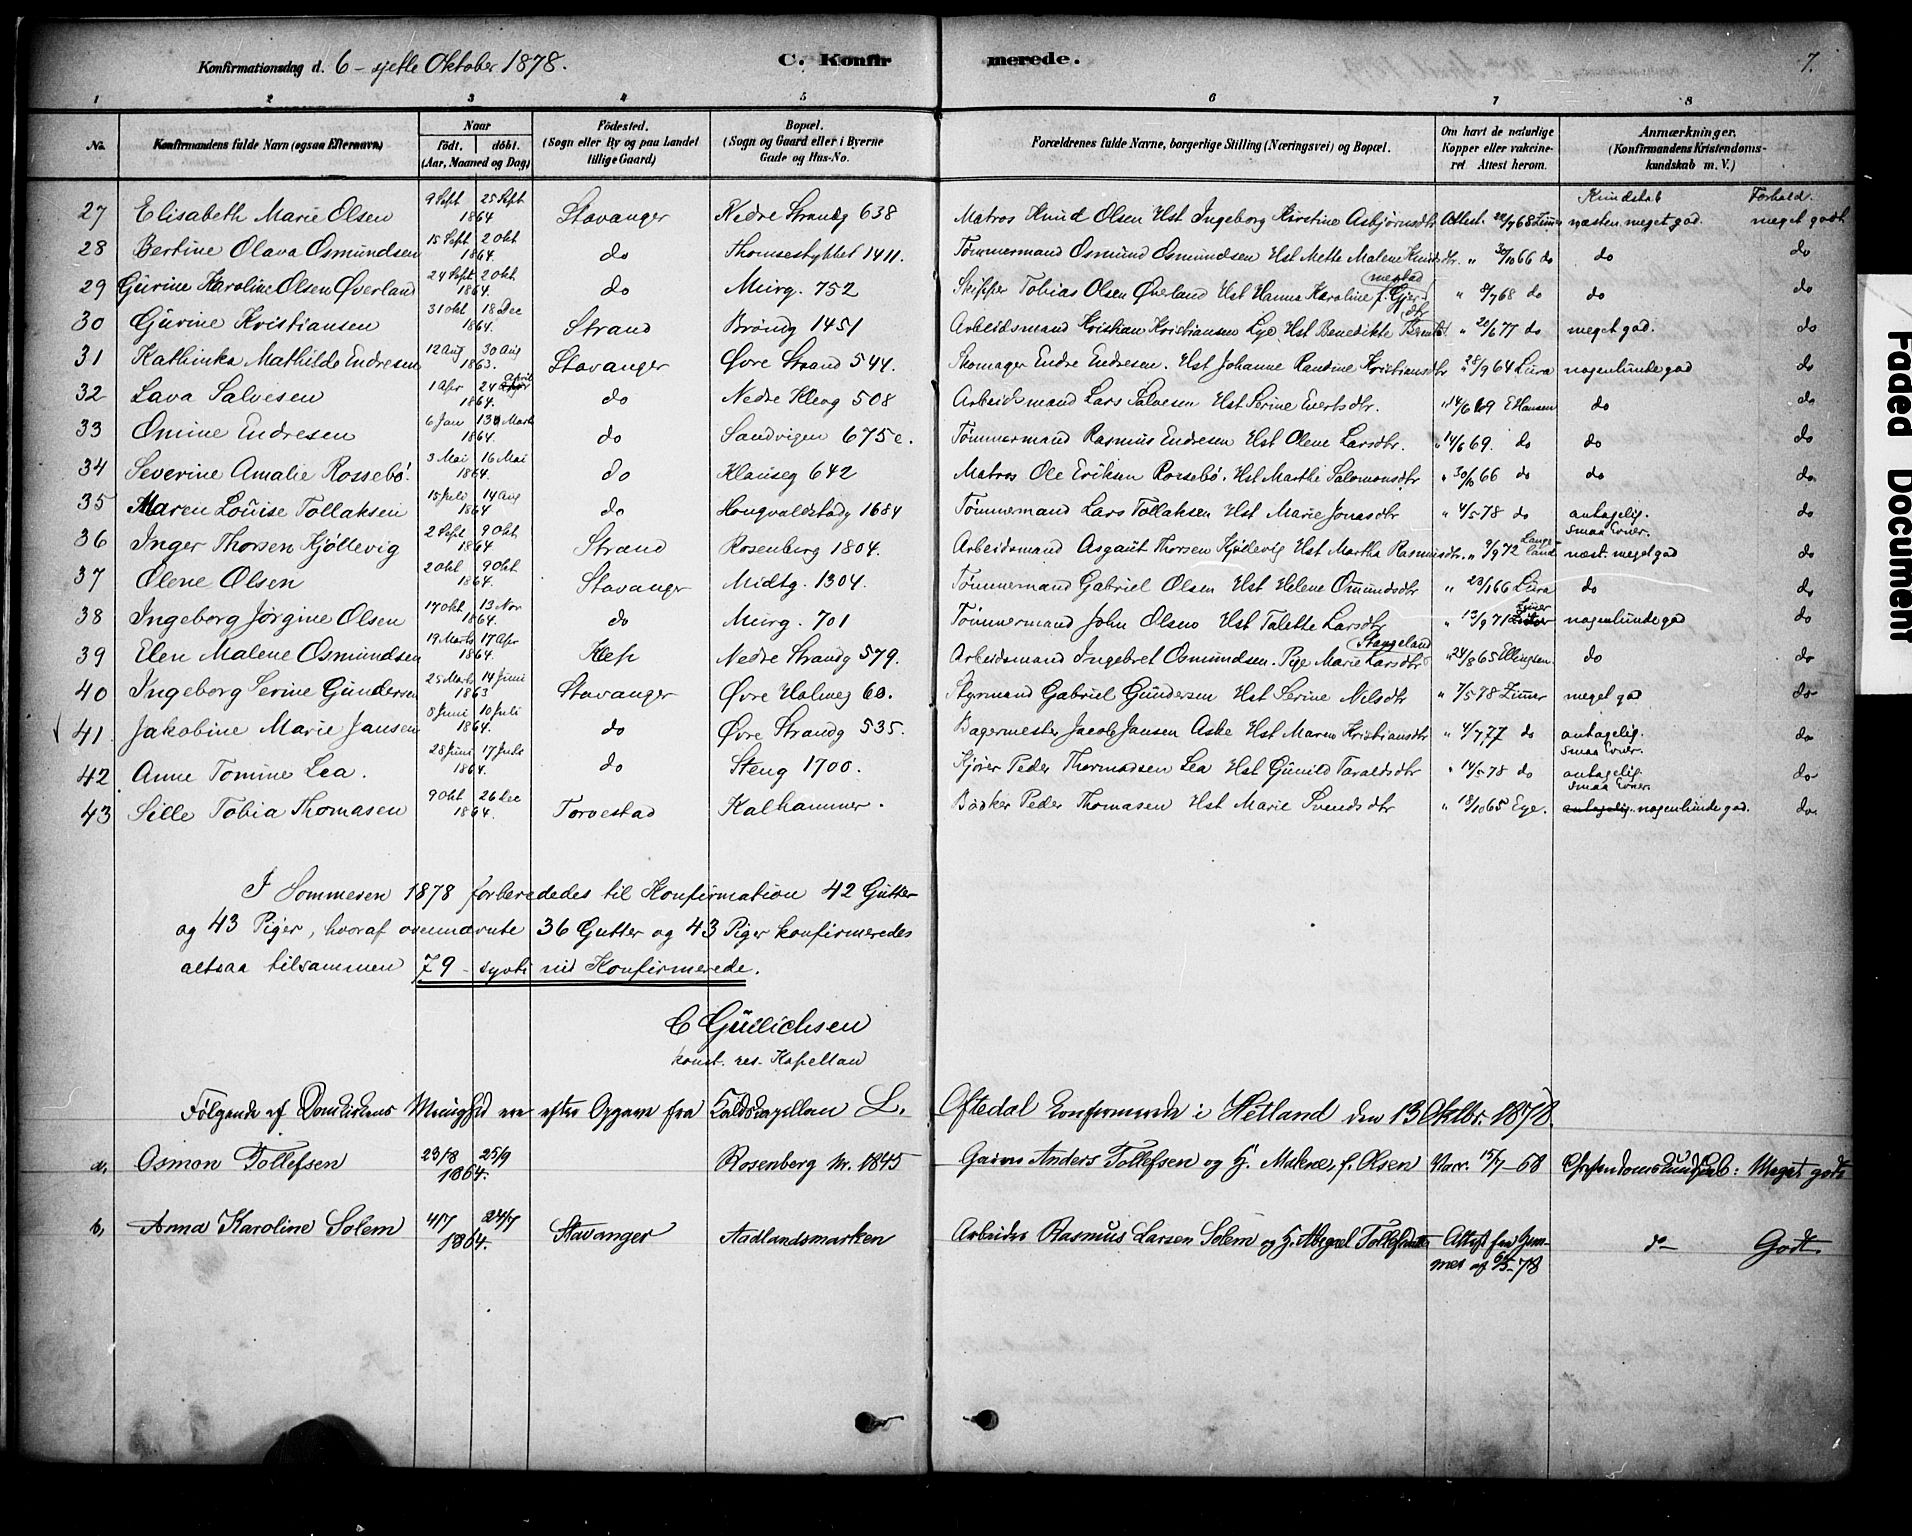 Konfirmationsdag d. 6 - sjette Oktober 1878. C. Konfir merede. 7.
1 2 3 4 5 6 7 8
No. Konfirmandens fulde Navn (ogsaa Efternavn) Naar Født. døbt. (Aar, Maaned og Dag) Fødested. (Sogn eller By og paa Landet tillige Gaard) Bopæl. (Sogn og Gaard eller i Byerne Gade og Hus-No. Forældrenes fulde Navne, borgerlige Stilling (Næringsvei) og Bopæl. Om havt de naturlige Kopper eller vakcineret. Attest herom. Anmærkninger. (Konfirmandens Kristendomskundskab m. V.)
Kundskab Forhold.
27 Elisabeth Marie Olsen 9 Sept 25 Sept 1864 Stavanger Nedre Strandg 638 Matros Knud Olsen Hst Ingeborg Kirstine Asbjørnsdtr Attest. 68 Zimer næsten meget god. meget godt
28 Bertine Olava Osmundsen 15 Sept 2 Okt 1864. do Thomsestykket 1411. Tømmermand Osmund Osmundsen Hst Mette Malene Knudsdtr. " 30/10 66 do do do
29 Gurine Karoline Olsen Øverland 24 Sept 2 Okt 1864. do Murg. 752 Skipper Tobias Olsen Øverland Hst Hanna Karoline f. Gjermestad " 9/7 68 do do do
30 Gurine Kristiansen 31 Okt 18 Dec 1864. Strand Brøndg 1451 Arbeidsmand Kristian Kristiansen Lye Hst Benedikte Berntsdtr " 20/6 77 do meget god. do
31 Kathinka Mathilde Endresen 12 Aug 30 Aug 1863. Stavanger Øvre Strand 544. Skomager Endre Endresen. Hst Johanne Randine Kristiansdtr " 28/9 64 Lura nogenlunde god do
32 Lava Salvesen 1 Apr 24 April 1864. do Nedre Klevg 508 Arbeidsmand Lars Salvesen Hst Serine Evertsdtr. " 14/6 69 E Hansen do do
33 Omine Endresen 6 Jan 13 Marts 1864. do Sandvigen 675c. Tømmermand Rasmus Endresen Hst Olene Larsdtr. " 14/6 69. do do do
34 Severine Amalie Rossebø. 3 Mai 16 Mai 1864. do Klauseg 642 Matros Ole Eriksen Rossebø. Hst Marthe Salomonsdtr. " 30/10 66 do do do
35 Maren Louise Tollaksen 15 Juli 14 Aug 1864 do Hongvaldstadg 1684 Tømmermand Lars Tollaksen Hst Marie Jonasdtr " 4/5 78 do antagelig. smaa Evner. do
36 Inger Thorsen Kjøllevig 2 Sept 9 Okt 1864 Strand Rosenberg 1804. Arbeidsmand Asgaut Thorsen Kjøllevig Hst Martha Rasmusdtr. " 9/9 72 Langeland næst. meget god do
37 Olene Olsen 2 Okt 9 Okt 1864. Stavanger Midtg. 1304. Tømmermand Gabriel Olsen Hst Helene Omundsdtr " 66 Lura do do
38 Ingeborg Jørgine Olsen 17 Okt 13 Nov 1864. do Murg. 701 Tømmermand John Olsen Hst Talette Larsdtr " 12/9 71 Zimer nogenlunde god do
39 Elen Malene Osmundsen 19 Marts 17 Apr 1864. Klep Nedre Strandg 579. Arbeidsmand Ingebret Osmundsen. Pige Marie Larsdtr Stangeland " 24/8 65 Ellingsen do do
40 Ingeborg Serine Gundersen 25 Marts 14 Juni 1863 Stavanger Øvre Holmeg 60. Styrmand Gabriel Gundersen Hst Serine Nilsdtr " 7/5 78 Zimer meget god do
41. Jakobine Marie Jansen 8 Juni 10 Juli 1864. do Øvre Strandg 535. Bagermester Jacob Jansen Aske Hst Maren Kristiansdtr " 4/7 77 do antagelig. smaa Evner. do
42 Anne Tomine Lea. 28 Juni 17 Juli 1864. do Steng 1700. Kjører Peder Thormodsen Lea Hst Gunild Taraldsdtr " 14/5 78 do antagelig. smaa Evner. do
43 Sille Tobia Thomasen 9 Okt 26 Dec 1864. Torvestad Kalhammer. Bødker Peder Thomasen Hst Marie Svendsdtr " 18/10 65 Eye. antagelig. nogenlunde god. do
I Sommeren 1878 forberededes til Konfirmation 42 Gutter
og 43 Piger, hvoraf ovennævnte 36 Gutter og 43 Piger konfirmeredes
altsaa tilsammen 79 - sytti ni Konfirmerede.
C Gullichsen
konst. res. Kapellan
Følgende af Domkirkens Menighed ere efter Opgave fra Kaldscapellan L. Oftedal konfirmerede i Hetland den 13 Oktbr. 1878.
a, Osmon Tollefsen 23/8 25/9 1864. Rosenberg Nr. 1845 Garver Anders Tollefsen og H. Malene f. Olsen Vacc. 15/7 - 68 Christendomskundskab: Meget godt
b, Anna Karoline Solem 4/7 24/7 1864. Stavanger Aadlandsmarken Arbeider Rasmus Larsen Solem og H. Abigael Tollefsdatter Attest fra Zimmer af 6/5 - 78 do Godt.
Faded Document